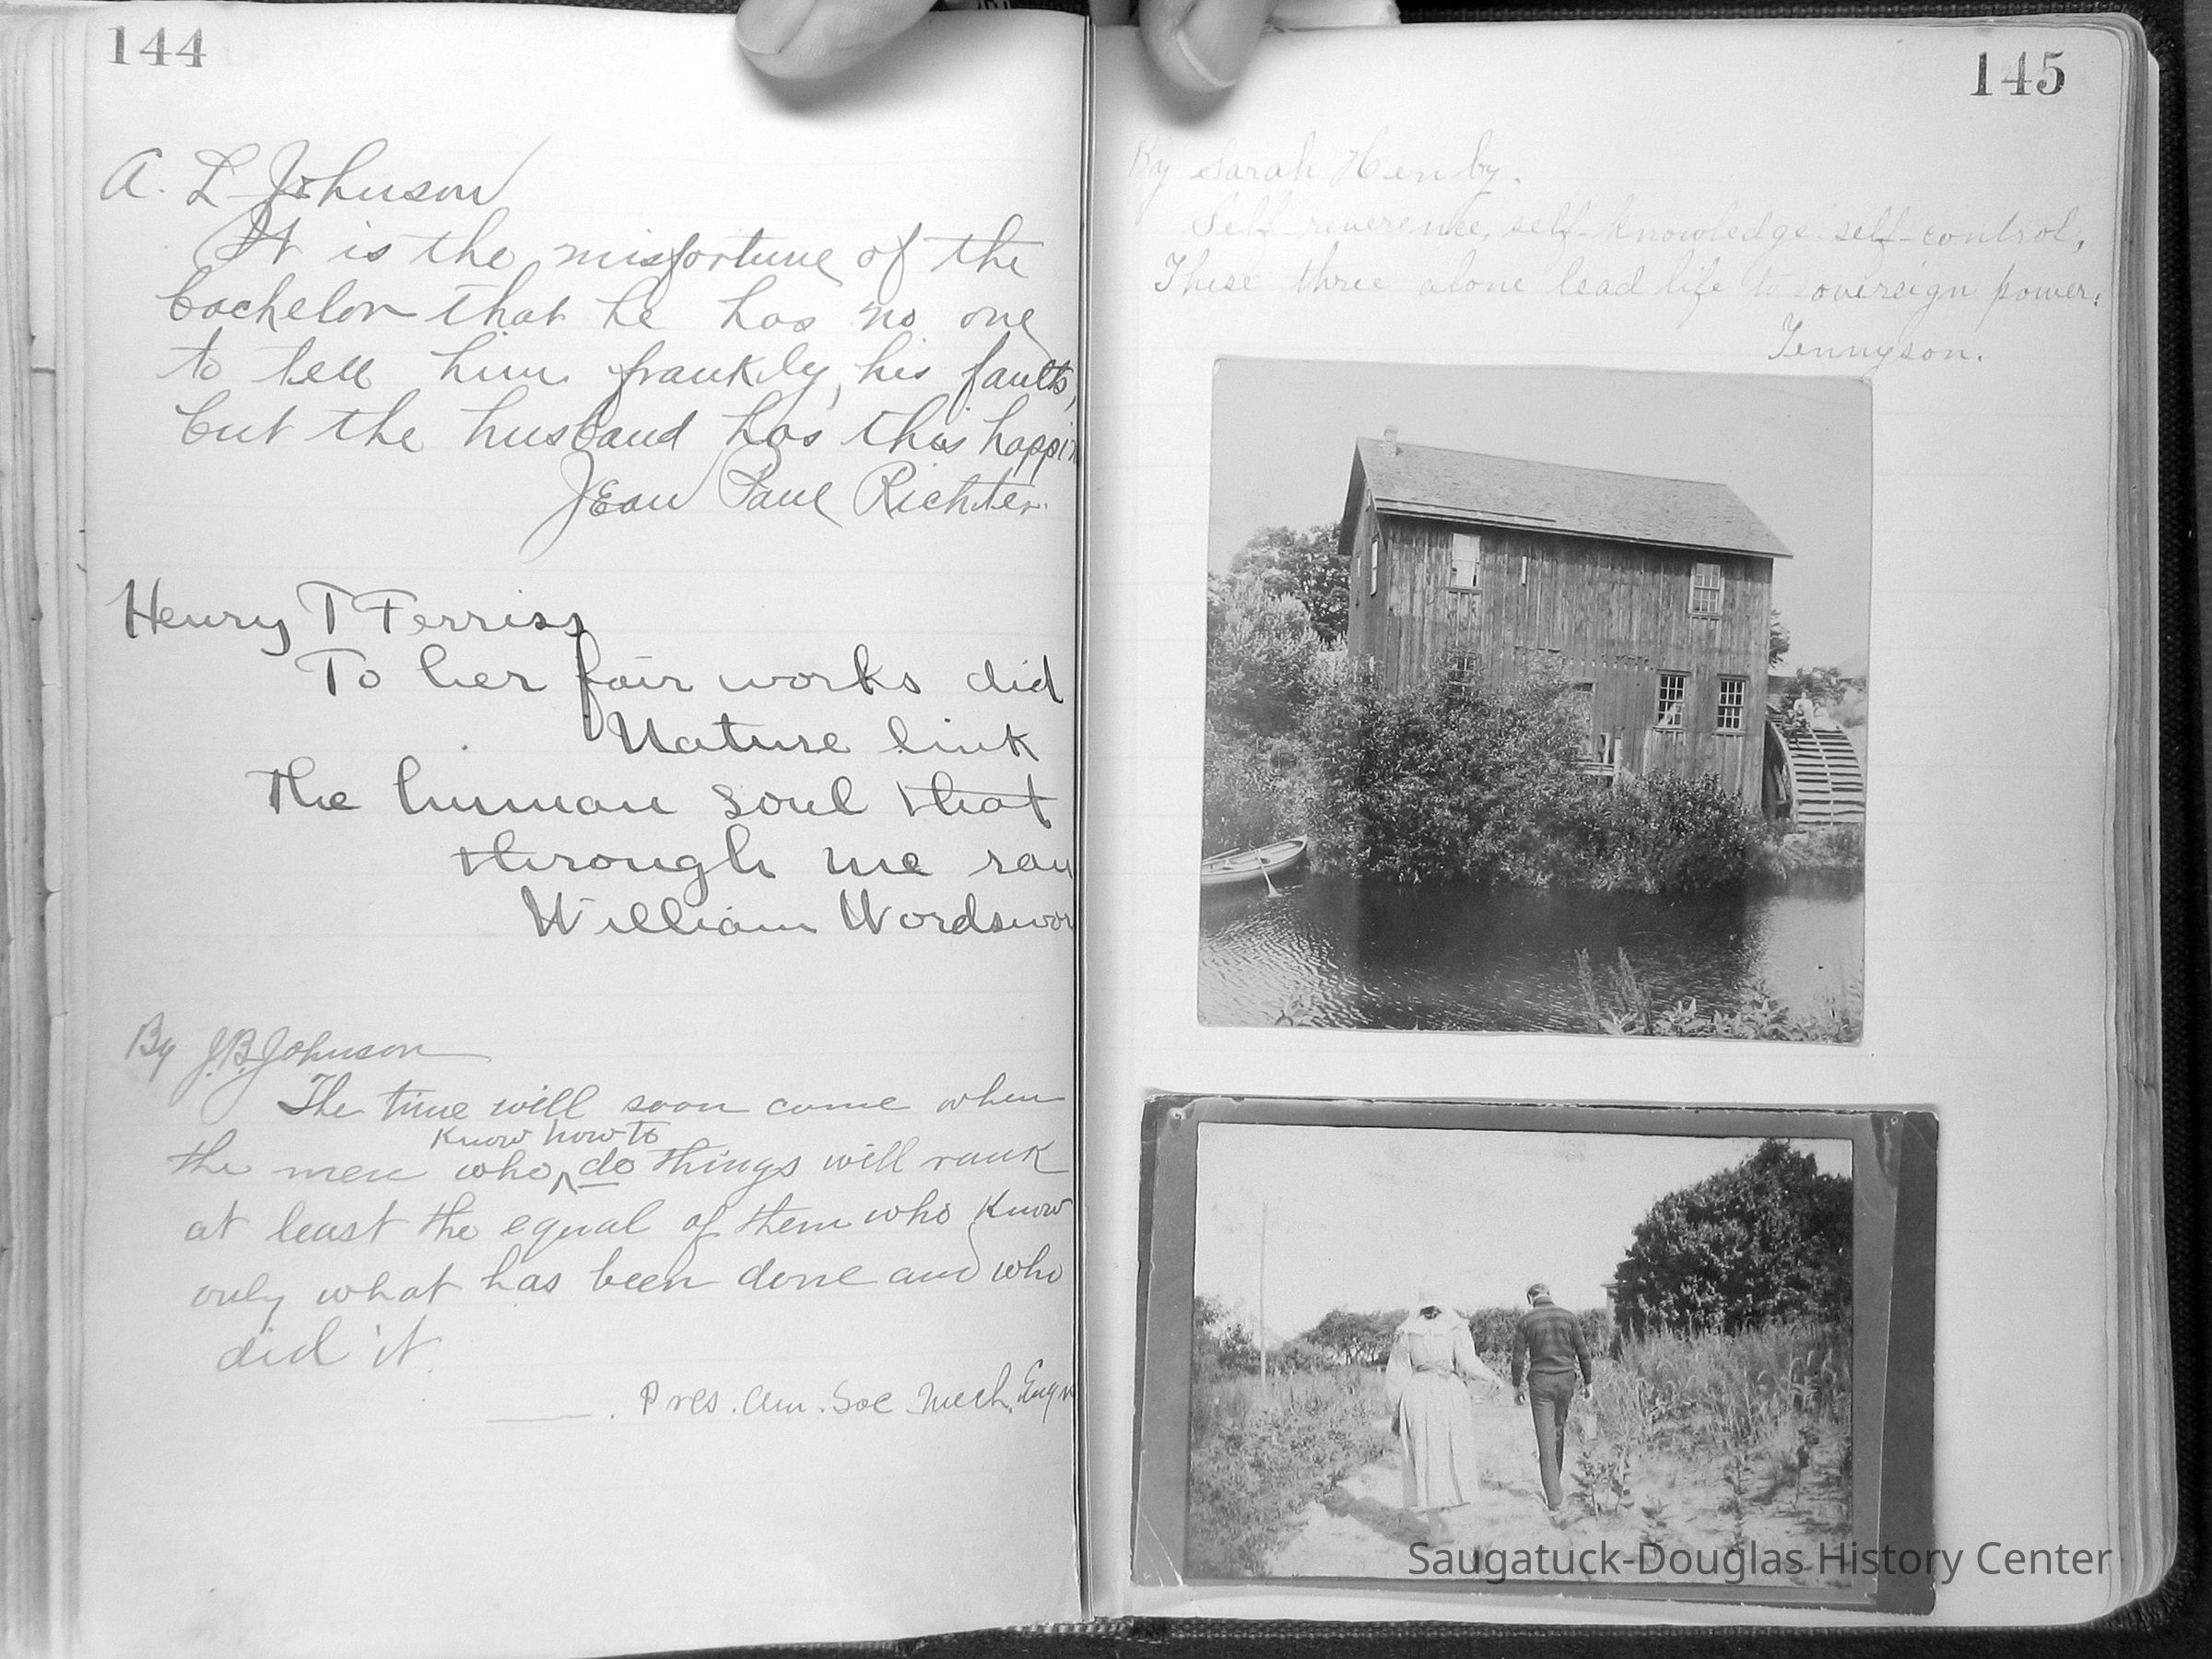 144
A. L Johnson
It is the misfortune of the
bachelor that he has no one
to tell him frankly, his faults,
but the husband has this happin
JEan Paul Richter.
Henry T Ferriss
To her fair works did
Nature link
The human soul that
through me ran
William Wordswor
By J.B. Johnson
The time will soon come when
know how to
the men who ^ do things will rank
at least the equal of them who know
only what has been done and who
did it.
Pres. Am. Soc Mech. Engr
145
By Sarah Henby.
Self-reverence, self-knowledge self-control,
These three alone lead life to sovereign power.
Tennyson.
Saugatuck-Douglas History Center